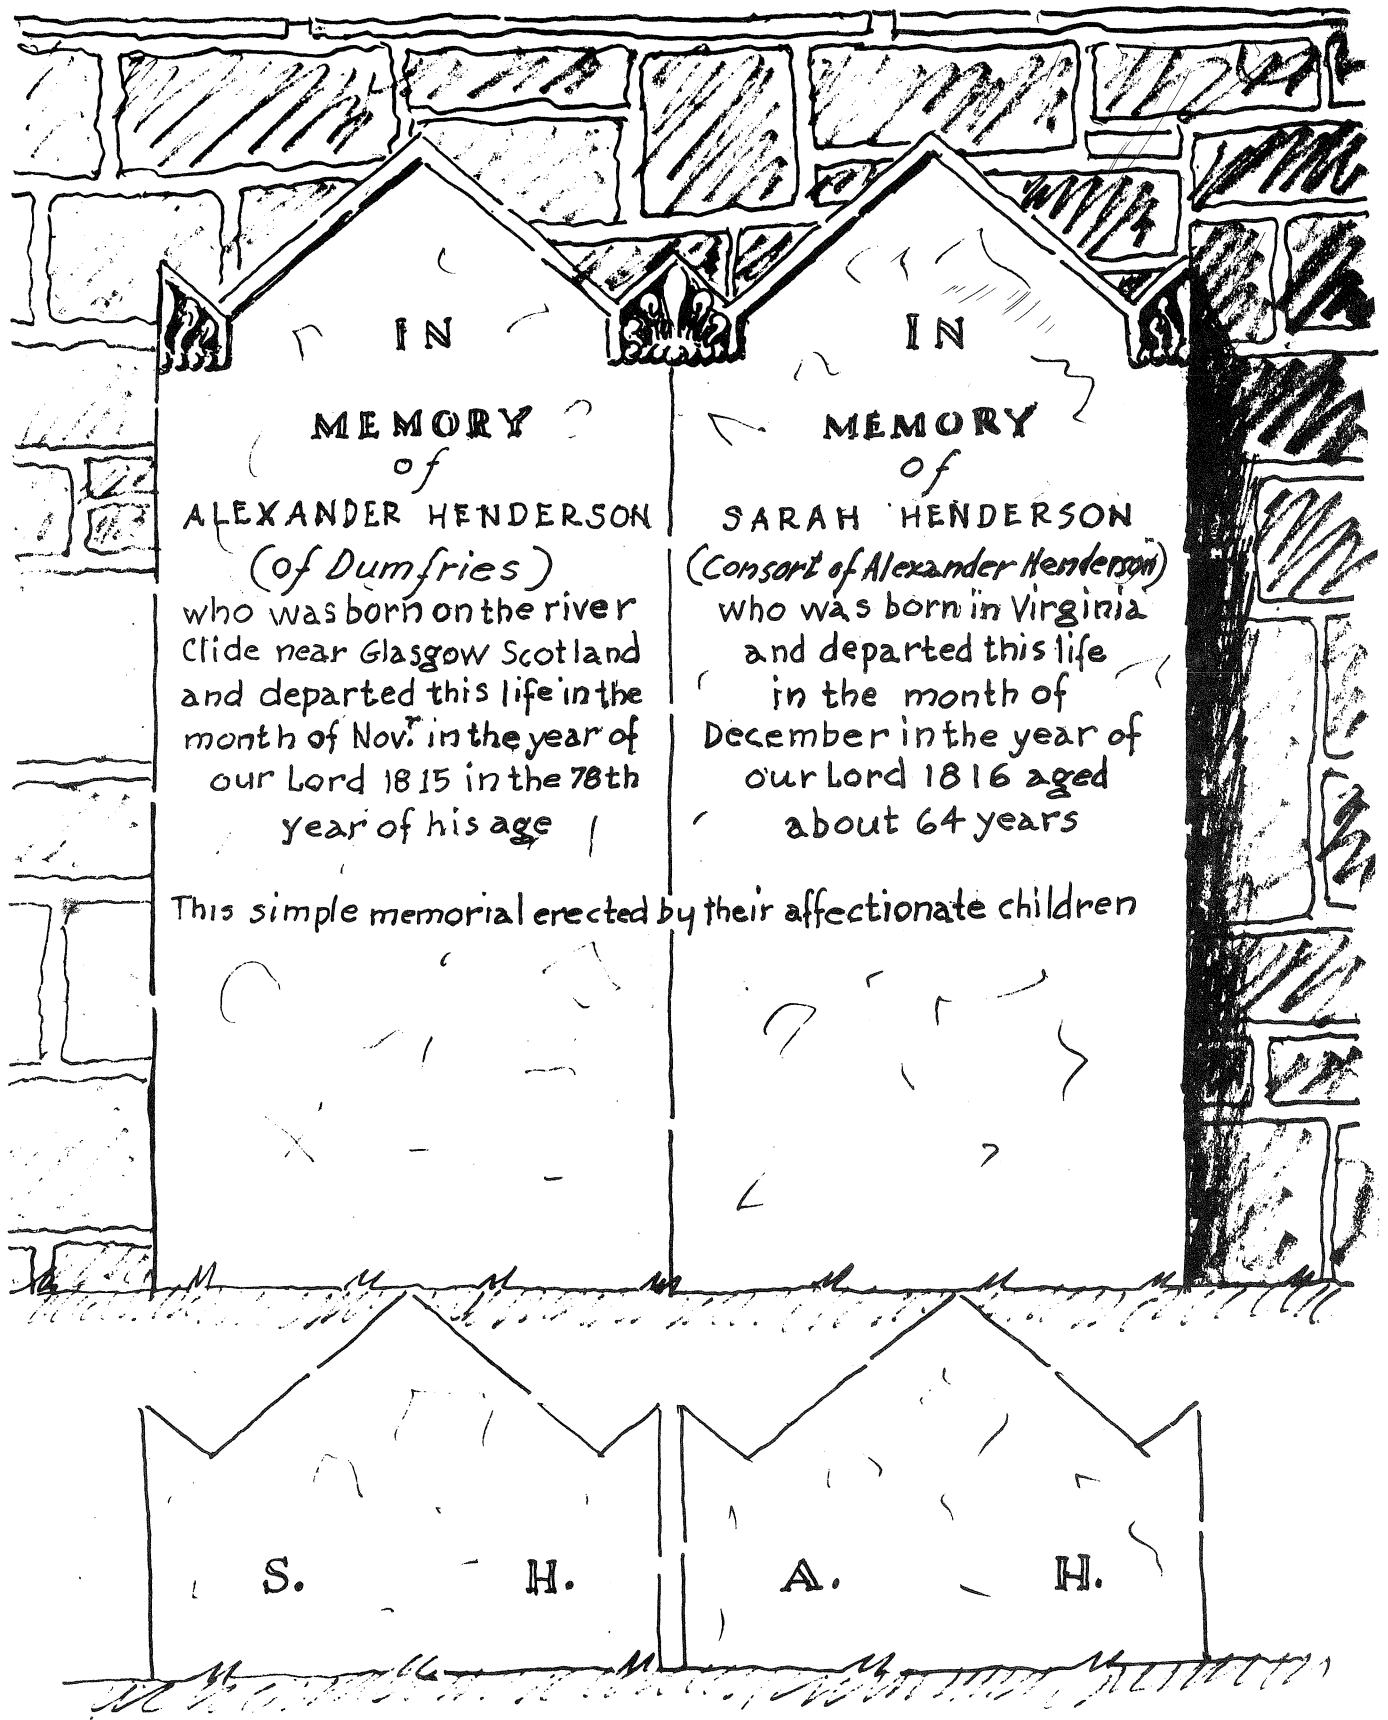 IN
MEMORY
of
ALEXANDER HENDERSON
(of Dumfries)
who was born on the river
Clide near Glasgow Scotland
and departed this life in the
month of Nov.r in the year of
our Lord 1815 in the 78th
year of his age
IN
MEMORY
of
SARAH HENDERSON
(Consort of Alexander Henderson)
who was born in Virginia
and departed this life
in the month of
December in the year of
our Lord 1816 aged
about 64 years
This simple memorial erected by their affectionate children
S. H.
A. H.